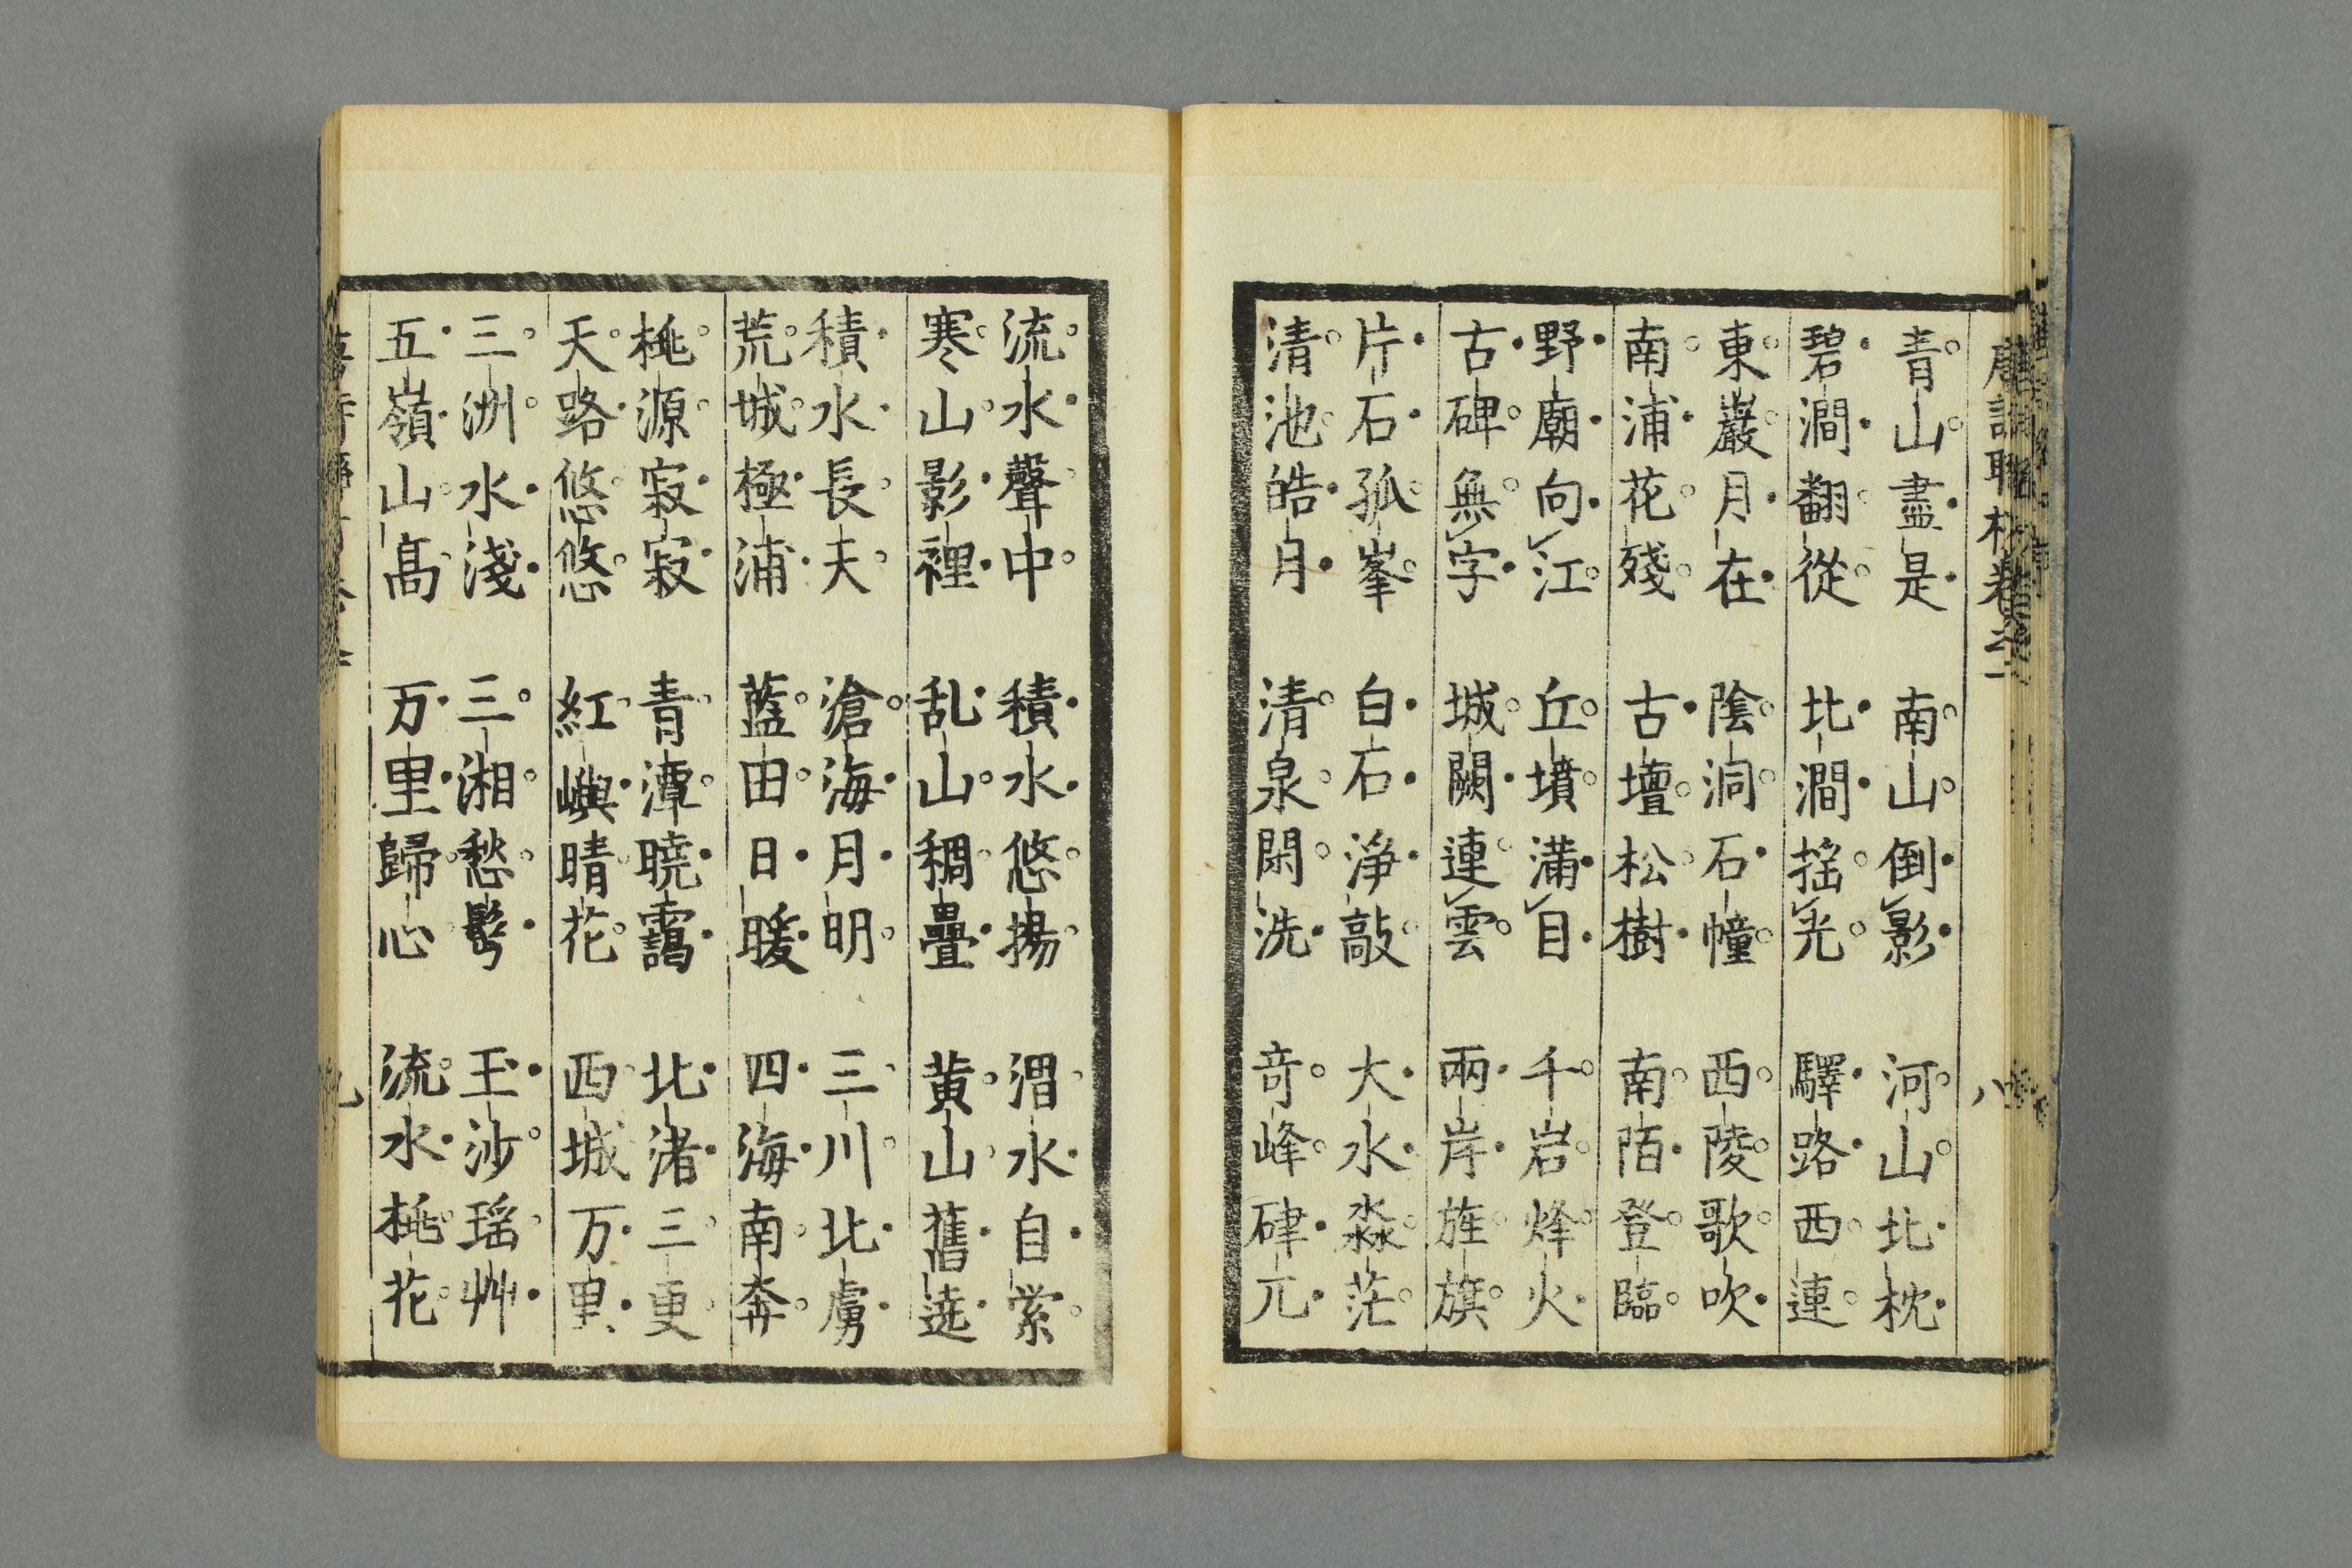 青山盡是 南山倒影 河山北枕
碧澗翻從 北澗揺光 驛路西連
東巖月在 陰洞石幢 西陵歌吹
南浦花殘 古壇松樹 南陌登臨
野廟向江 丘墳滿目 千岩烽火
古碑無字 城闕連雲 兩岸旌旗
片石孤峯 白石淨敲 大水淼茫
清池皓月 清泉閑洗 奇峰硉兀
流水聲中 積水悠揚 渭水自縈
寒山影裡 乱山稠疊 黄山舊遶
積水長天 滄海月明 三川北虜
荒城極浦 藍田日暖 四海南奔
桃源寂寂 青潭曉靄 北渚三更
天路悠悠 紅嶼晴花 西城万里
三洲水淺 三湘愁鬓 玉沙瑶艸
五嶺山髙 万里歸心 流水桃花